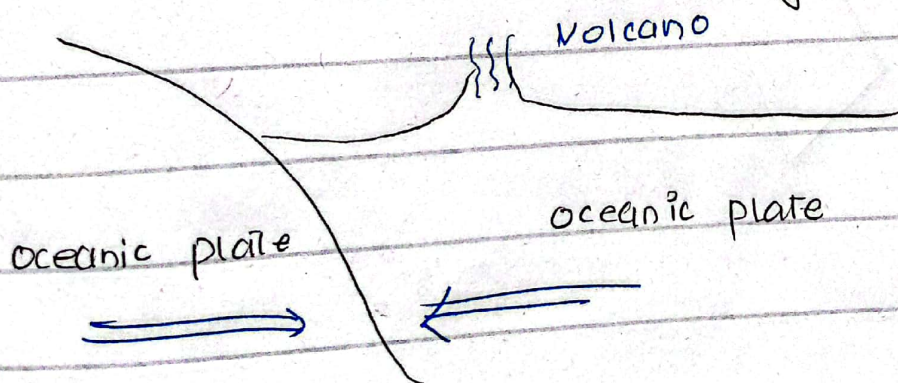 Volcano
oceanic plate
oceanic plate